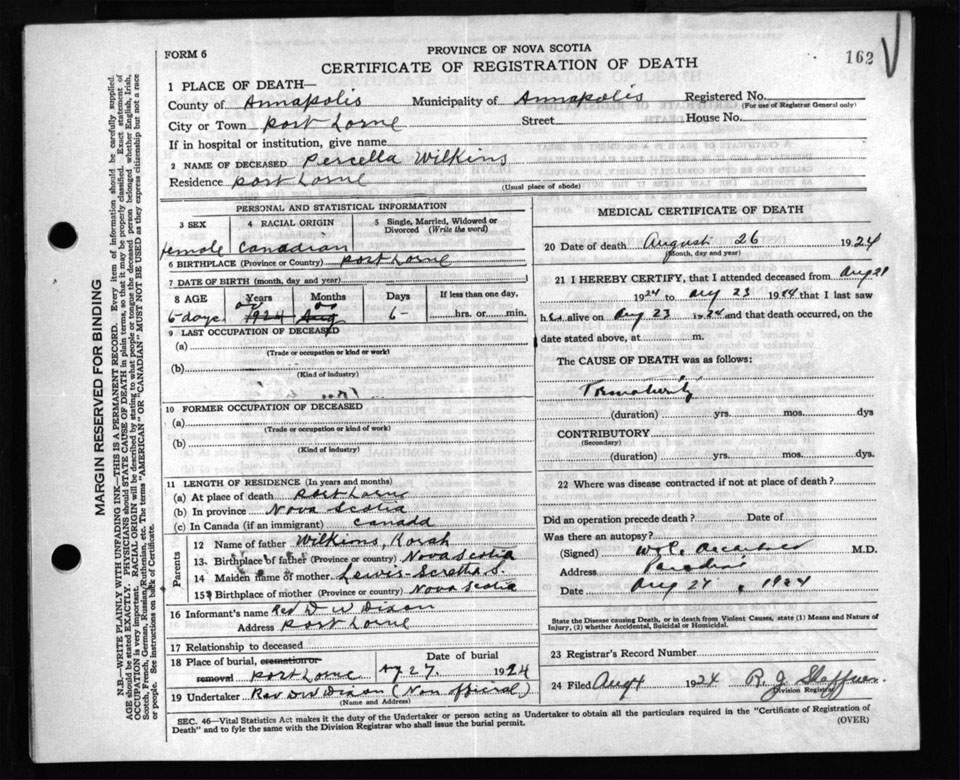 FORM 6
PROVINCE OF NOVA SCOTIA
162
CERTIFICATE OF REGISTRATION OF DEATH
1 PLACE OF DEATH—
County of Annapolis Municipality of Annapolis Registered No.
(For use of Registrar General only)
City or Town Port Lorne Street House No.
If in hospital or institution, give name
2 NAME OF DECEASED Percella Wilkins
Residence Port Lorne
(Usual place of abode)
PERSONAL AND STATISTICAL INFORMATION
3 SEX 4 RACIAL ORIGIN 5 Single, Married, Widowed or Divorced (Write the word)
female Canadian
6 BIRTHPLACE (Province or Country) Port Lorne
7 DATE OF BIRTH (month, day and year)
8 AGE Years Months Days If less than one day,
6 days 1924 Aug 6 hrs. or min.
9 LAST OCCUPATION OF DECEASED
(a)
(Trade or occupation or kind or work)
(b)
(Kind of industry)
10 FORMER OCCUPATION OF DECEASED
(a)
(Trade or occupation or kind or work)
(b)
(Kind of industry)
11 LENGTH OF RESIDENCE (In years and months)
(a) At place of death Port Lorne
(b) In province Nova Scotia
(c) In Canada (if an immigrant) Canada
Parents
12 Name of father Wilkins,
13 Birthplace of father (Province or country) Nova Scotia
14 Maiden name of mother Lewis
15 Birthplace of mother (Province or country) Nova Scotia
16 Informant's name Rev D W Dixon
Address Port Lorne
17 Relationship to deceased
18 Place of burial, cremation or removal Port Lorne Date of burial 27 1924
19 Undertaker Rev D W Dixon (Non official)
(Name and Address)
MEDICAL CERTIFICATE OF DEATH
20 Date of death August 26 1924
(Month, day and year)
21 I HEREBY CERTIFY, that I attended deceased from Aug 21
1924 to Aug 23 1924 that I last saw
h alive on Aug 23 1924 and that death occurred, on the
date stated above, at m.
The CAUSE OF DEATH was as follows:
Prematurity
(duration) yrs. mos. dys
CONTRIBUTORY
(Secondary)
(duration) yrs. mos. dys.
22 Where was disease contracted if not at place of death?
Did an operation precede death? Date of
Was there an autopsy?
(Signed) M.D.
Address Paradise
Date Aug 1924
State the Disease causing Death, or in death from Violent Causes, state (1) Means and Nature of
Injury, (2) whether Accidental, Suicidal or Homicidal.
23 Registrar's Record Number
24 Filed Aug 1924 R. J. Shaffner
Division Registrar
SEC. 46—Vital Statistics Act makes it the duty of the Undertaker or person acting as Undertaker to obtain all the particulars required in the "Certificate of Registration of
Death" and to fyle the same with the Division Registrar who shall issue the burial permit.
(OVER)
MARGIN RESERVED FOR BINDING
N.B.—WRITE PLAINLY WITH UNFADING INK—THIS IS A PERMANENT RECORD. Every item of information should be carefully supplied.
AGE should be stated EXACTLY. PHYSICIANS should STATE CAUSE OF DEATH in plain terms, so that it may be properly classified. Exact statement of
OCCUPATION is very important. RACIAL ORIGIN will be described by stating to what people or tongue the deceased person belonged whether English, Irish,
Scotch, French, German, Russian, Ruthenian, etc. The terms "AMERICAN" OR "CANADIAN" MUST NOT BE USED as they express citizenship but not a race
or people. See instructions on back of Certificate.